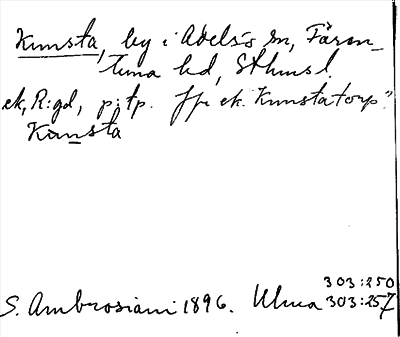 Kumsta, by i Adels's sn, Fären-
tuna hd, Sthms l.
ek, R:gd, p:tp. ek. "Kumstatorp".
Kumsta
303:250
S. Ambrosiani 1896. Uhua 303:257